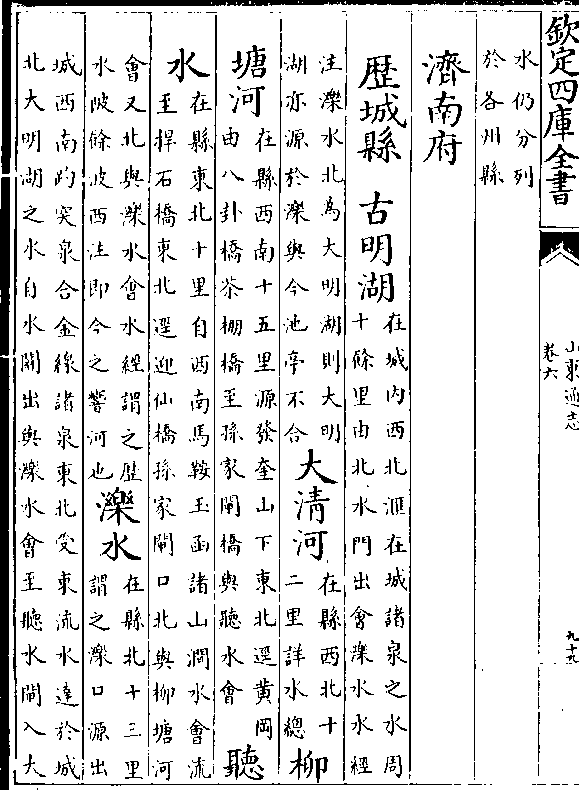 欽定四庫全書
山東通志
卷六
九十九
水仍分列
於各州縣
濟南府
歴城縣
古明湖
在城内西北滙在城諸泉之水周
十餘里由北水門出會濼水水經
注濼水北為大明湖則大明
湖亦源於濼與今池亭不合
大清河
在縣西北十
二里詳水總
柳
塘河
在縣西南十五里源發奎山下東北逕黄岡
由八卦橋茶棚橋至孫家閘橋與聽水會
聽
水
在縣東北十里自西南馬鞍玉函諸山澗水會流
至捍石橋東北逕迎仙橋孫家閘口北與柳塘河
會又北與濼水會水經謂之歴
水陂餘波西注即今之響河也
濼水
在縣北十三里
謂之濼口源出
城西南趵突泉合金線諸泉東北受東流水達於城
北大明湖之水自水關出與濼水會至聽水閘入大